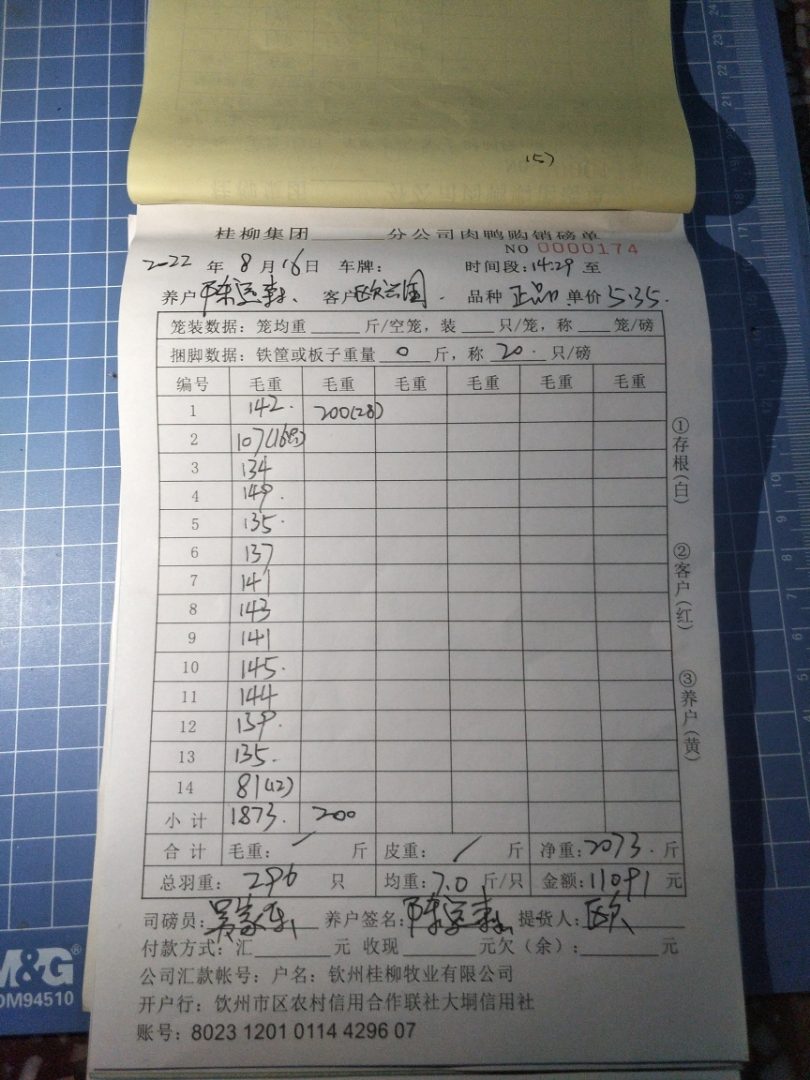 (5)
桂柳集团______分公司肉鸭购销磅单
NO 0000174
2022 年 8 月 16 日 车牌: 时间段: 14:29 至
养户 陈运 客户 欧兴国. 品种 正品 单价 5.35.
笼装数据: 笼均重 ____ 斤/空笼, 装 ___ 只/笼, 称 ___ 笼/磅
捆脚数据: 铁筐或板子重量 0 斤, 称 20. 只/磅
编号 毛重 毛重 毛重 毛重 毛重 毛重
1 142. 200(28)
2 107(16只)
3 134
4 149.
5 135.
6 137
7 141
8 143
9 141
10 145.
11 144
12 139.
13 135.
14 81(12)
小计 1873. 200
合计 毛重: / 斤 皮重: / 斤 净重: 2073. 斤
总羽重: 296 只 均重: 7.0 斤/只 金额: 11091 元
司磅员: 养户签名: 陈运 提货人: 欧
付款方式: 汇______元 收现______元欠(余): ______元
公司汇款帐号: 户名: 钦州桂柳牧业有限公司
开户行: 钦州市区农村信用合作联社大垌信用社
账号: 8023 1201 0114 4296 07
①存根(白)
②客户(红)
③养户(黄)
M&G
DM94510